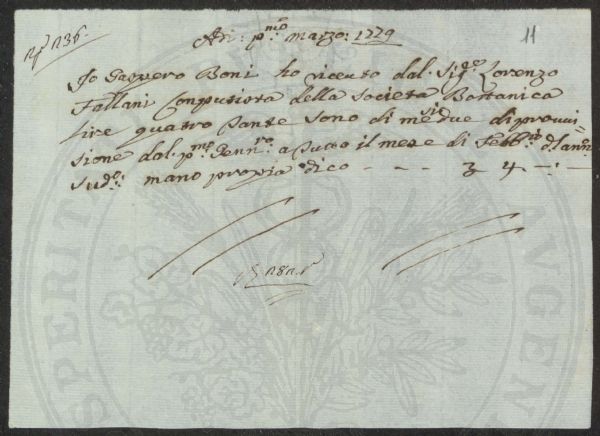 N.º 136.
11
Adi: p.mo marzo: 1779
Io Gaspero Boni ho riceuto dal Sig.re Lorenzo
Fallani Computista della Società Bottanica
lire quattro tante sono di mesi due di provvi=
sione dal p.mo Genn.ro a tutto il mese di Febb.ro d. ann.o
sud.o: mano propria dico - - - £ 4 -:-:-